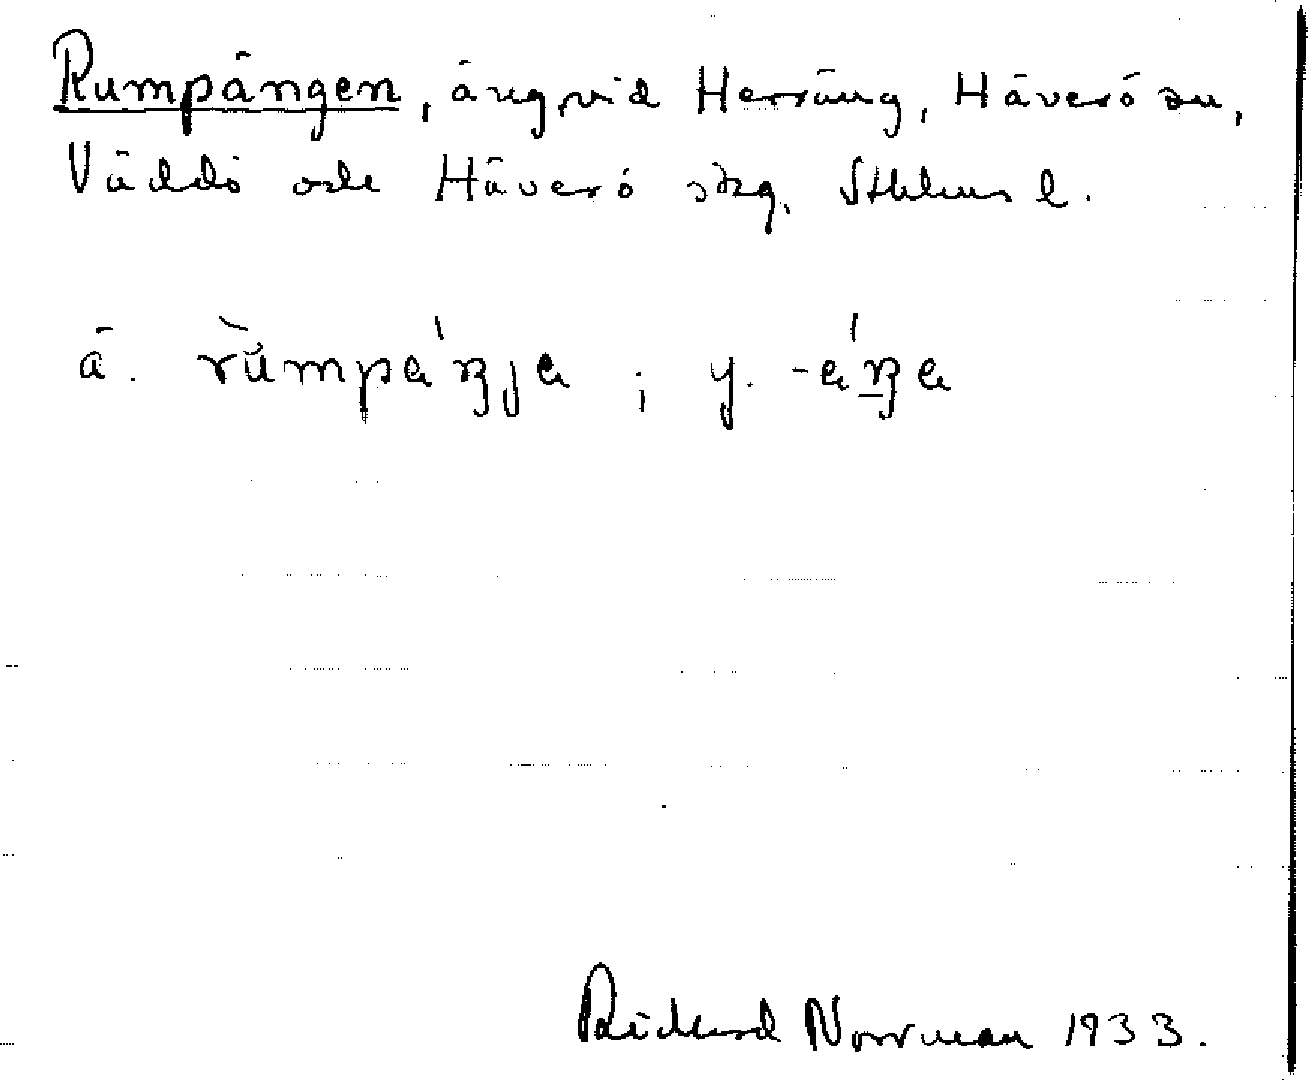 Rumpängen, äng vid Herräng, Häverö sn,
Väddö och Häverö skg, Sthlms l.
ä. rùmpäŋja ; y. -äŋa
Richard Norrman 1933.